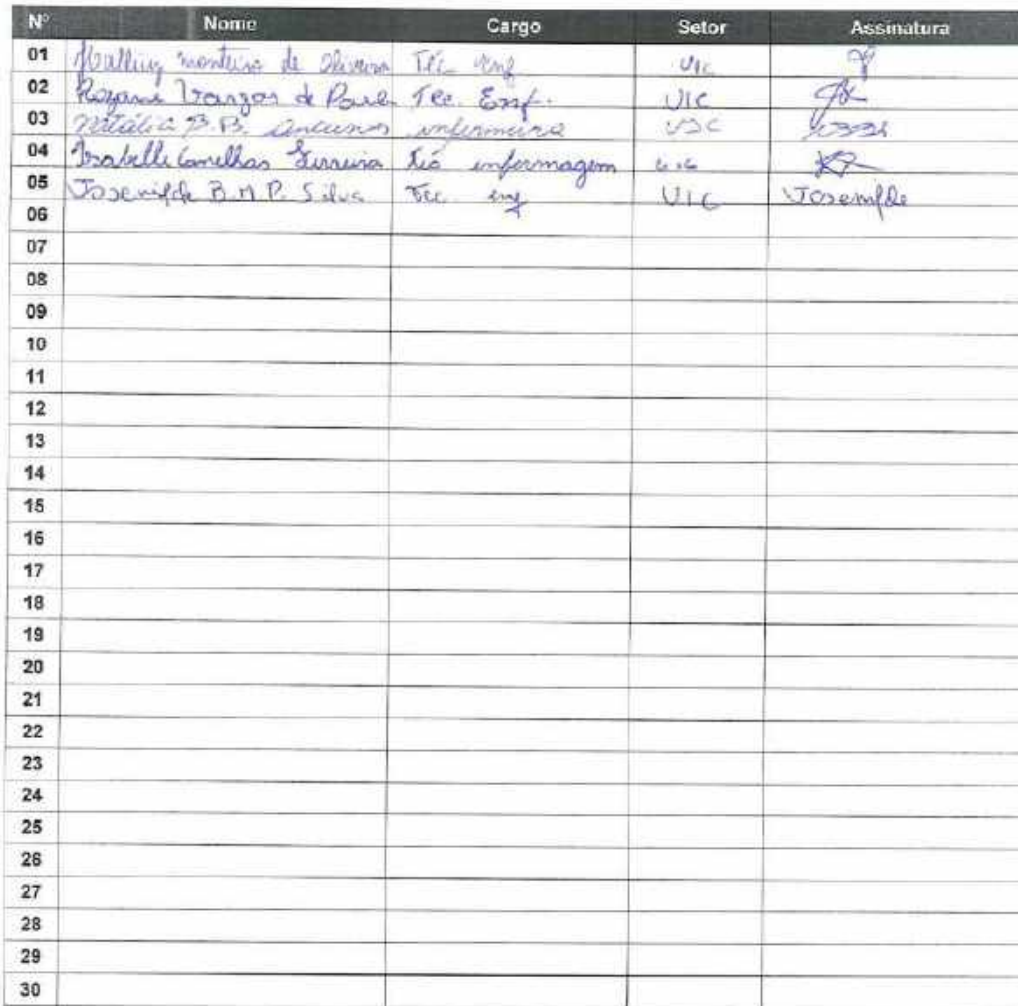 Nº Nome Cargo Setor Assinatura
01 monteiro de Oliveira Téc enf UIC
02 Rozane Vargas de Paula Tec. Enf. UIC
03 Natália B.B. Antunes enfermeira UIC
04 Isabelle Camelhas Ferreira téc enfermagem UIC
05 Josenilde B.M.P. Silva Tec. enf UIC Josenilde
06
07
08
09
10
11
12
13
14
15
16
17
18
19
20
21
22
23
24
25
26
27
28
29
30